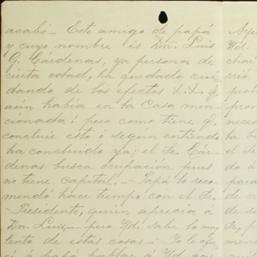 acabó.- Este amigo de papá
y cuyo nombre es Dn. Luis
G. Cárdenas, ya persona de
cierta edad, ha quedado cui-
dando de los efectos &.&. q'
aún habia en la Casa men-
cionada; pero como tiene q'
concluir esto ó según entiendo
ha concluido ya; el Sr. Cár-
denas busca ocupación, pues
no tiene capital.- Papá lo reco-
mendó hace tiempo con el Sr.
Presidente, quien aprecia a
Dn. Luis,- pero Ud. sabe lo muy
de estas cosas.-
papá hablar á Ud.